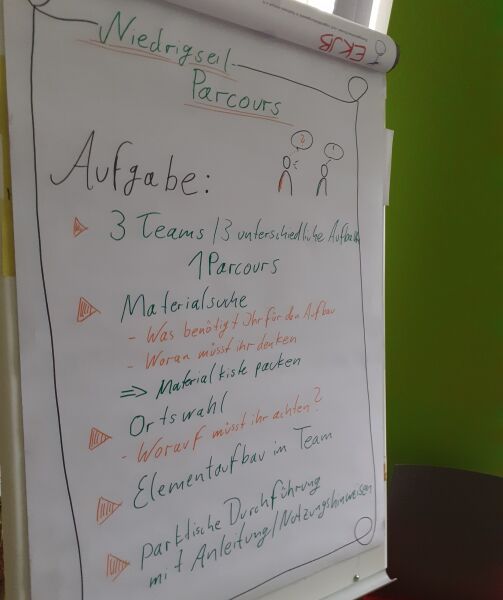 EKJB
Niedrigseil
Parcours
?
!
Aufgabe:
3 Teams / 3 unterschiedliche Aufbau
1 Parcours
Materialsuche
- Was benötigt Ihr für den Aufbau
- Woran müsst ihr denken
=> Materialkiste packen
Ortswahl
- Worauf müsst ihr achten?
Elementaufbau im Team
parktische Durchführung
mit Anleitung/Nutzungshinweisen